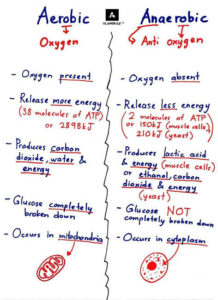 Aerobic
Oxygen
- Oxygen present
- Release more energy
(38 molecules of ATP)
or 2898kJ
- Produces carbon
dioxide, water &
energy
- Glucose completely
broken down
- Occurs in mitochondria
A
Anaerobic
Anti oxygen
- Oxygen absent
- Release less energy
(2 molecules of ATP)
or 150kJ (muscle cells)
210kJ (yeast)
- Produces lactic acid
& energy (muscle cells)
or ethanol, carbon
dioxide & energy
(yeast)
- Glucose NOT
completely broken down
- Occurs in cytoplasm